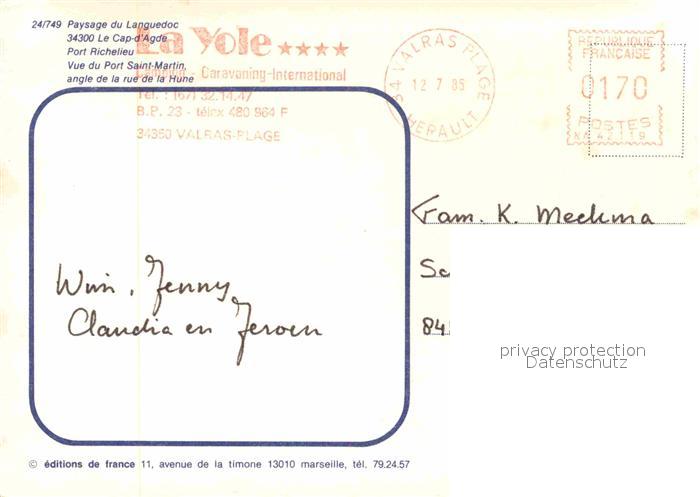 24/749 Paysage du Languedoc
34300 Le Cap-d'Agde
Port Richelieu
Vue du Port Saint-Martin,
angle de la rue de la Hune
La Yole ★★★★
Camping - Caravaning-International
Tél. : (67) 32.14.47
B.P. 23 - télex 480 964 F
34350 VALRAS-PLAGE
34 VALRAS PLAGE
12 7 85
HERAULT
REPUBLIQUE
FRANÇAISE
0170
POSTES
Fam. K. Meekma
Sc
84
Wim, Jenny,
Claudia en Jeroen
privacy protection
Datenschutz
© éditions de france 11, avenue de la timone 13010 marseille, tél. 79.24.57